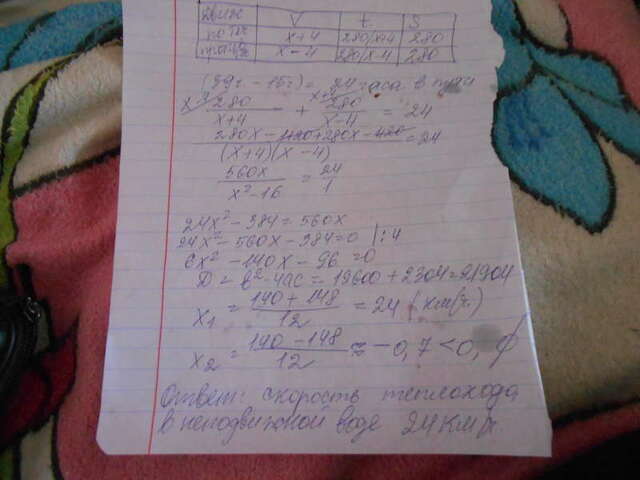 Движ V t S
по теч x+4 280/x+4 280
x-4 280/x-4 280
(39ч - 15ч) = 24 часа в пути
280/x+4 + 280/x-4 = 24
280x - 1120 + 280x - = 24
(x+4)(x-4)
560x/x²-16 = 24/1
24x² - 384 = 560x
24x² - 560x - 384 = 0 | : 4
6x² - 140x - 96 = 0
D = b² - 4ac = 19600 + 2304 = 21904
x₁ = 140 + 148/12 = 24 (км/ч)
x₂ = 140 - 148/12 ≈ -0,7 < 0, ∅
Ответ: скорость теплохода
в неподвижной воде 24 км/ч.